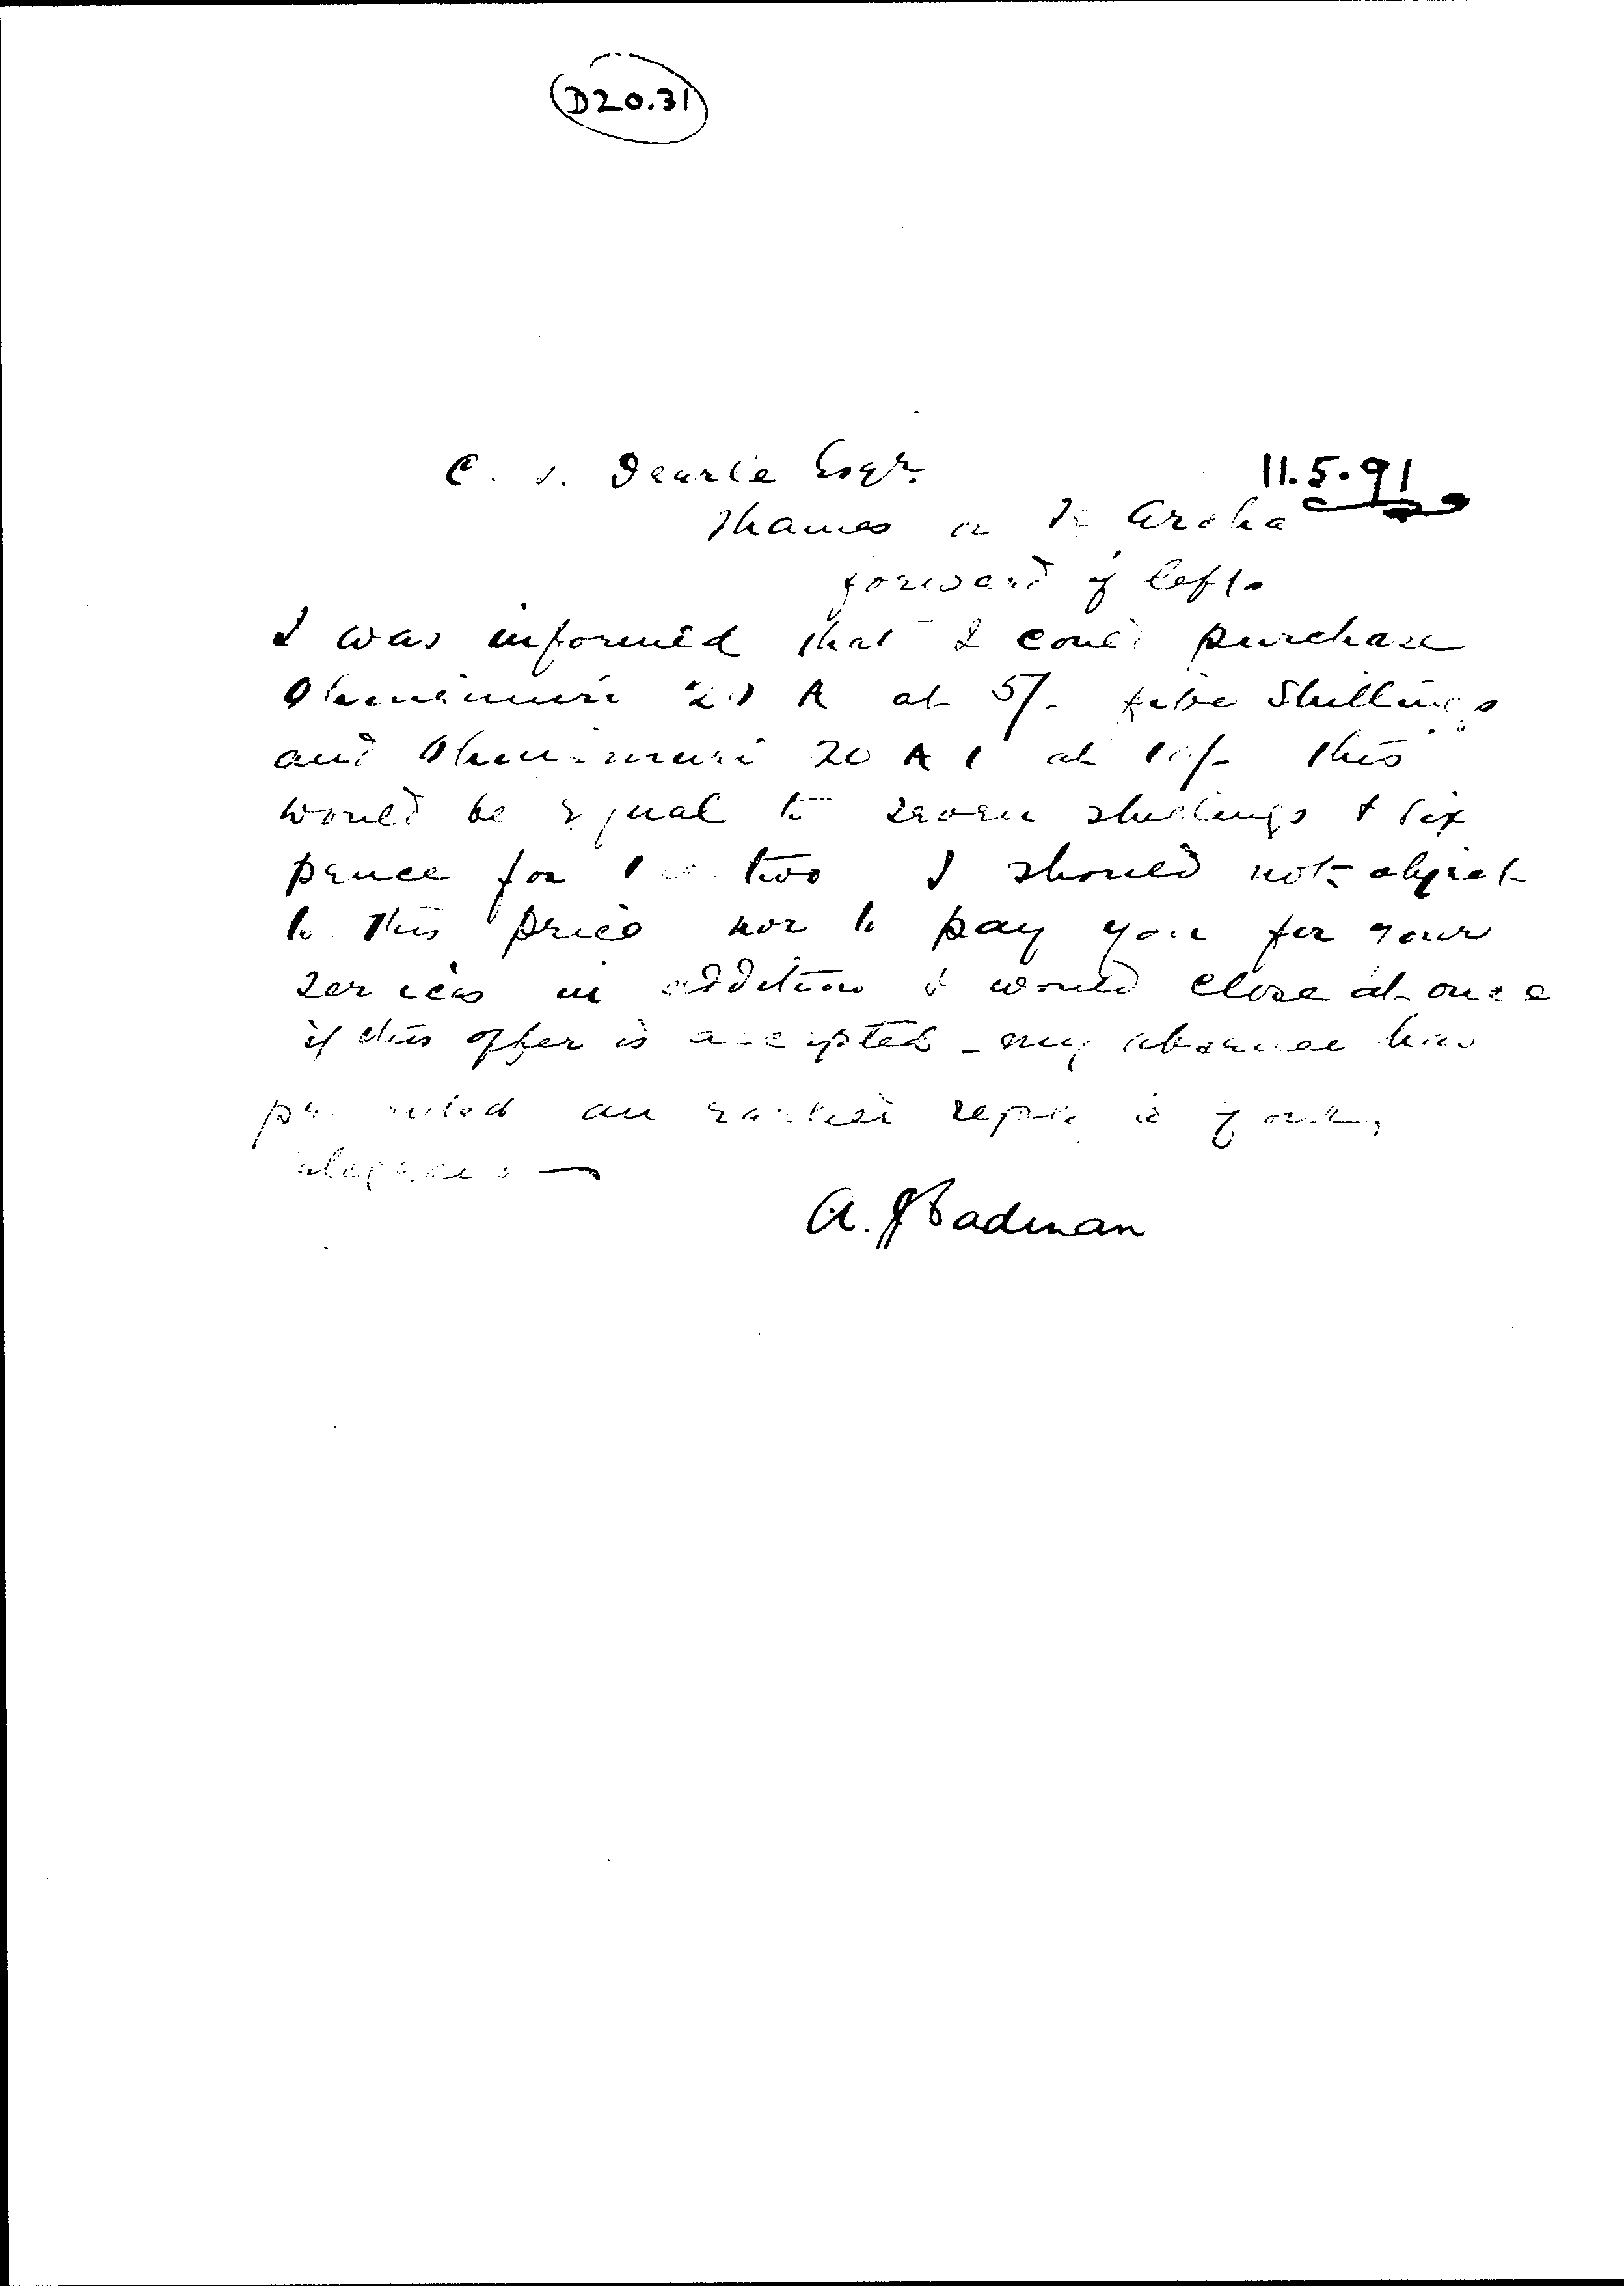 D20.31
C. J. Dearle Esqr.
11.5.91
Thames or Te Aroha
forward if left.
I was informed that I could purchase
Ohinemuri 20 A at 5/- five Shillings
and Ohinemuri 20 A 1 at 10/- this
would be equal to seven shillings & six
pence for the two I should not object
to this price nor to pay you for your
services in addition & would close at once
if this offer is accepted - my absence has
prevented an earlier reply to your
A. Cadman